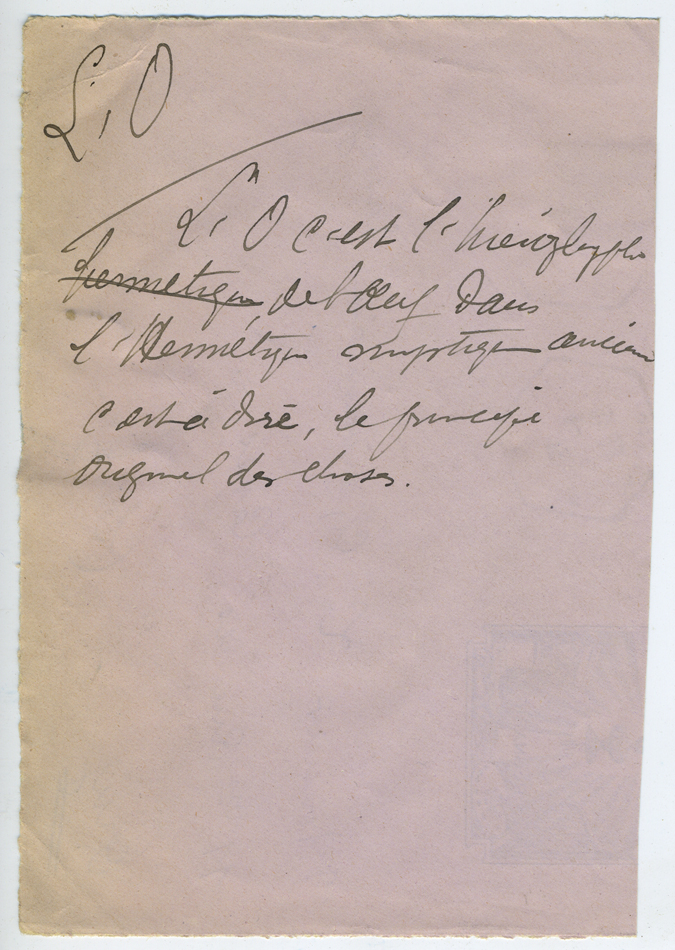 L'O
L'O c'est l'hiéroglyphe
hermétique de l'Oeuf dans
l'Hermétique mystique ancien
c'est à dire, le principe
originel des choses.